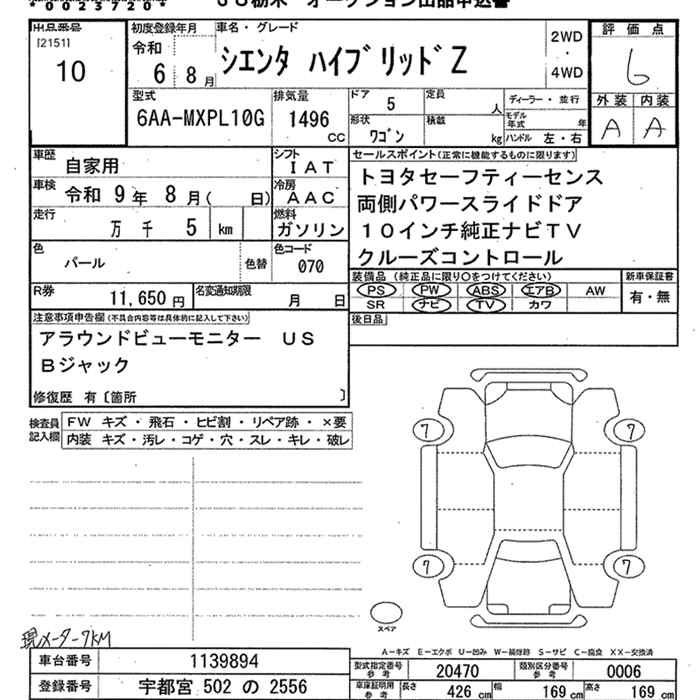 *0023720*
JU栃木 オークション出品申込書
出品番号 [2151] 10
初度登録年月 令和 6年 8月
車名・グレード シエンタ ハイブリッドZ
2WD・4WD
評価点 6
外装 内装
A A
型式 6AA-MXPL10G
排気量 1496 CC
ドア 5
定員 人
形状 ワゴン
積載 kg
ディーラー・並行
モデル年式 年
ハンドル 左・右
車歴 自家用
シフト IAT
車検 令和 9年 8月( 日)
冷房 AAC
走行 万 千 5 km
燃料 ガソリン
色 パール
色替
色コード 070
R券 11,650円
名変通知期限 月 日
セールスポイント(正常に機能するものに限ります)
トヨタセーフティーセンス
両側パワースライドドア
10インチ純正ナビTV
クルーズコントロール
装備品 (純正品に限り○をつけてください)
PS PW ABS エアB AW
SR ナビ TV カワ
新車保証書
有・無
後日品
注意事項申告欄(不具合内容等は具体的に記入して下さい)
アラウンドビューモニター US
Bジャック
修復歴 有〔箇所 〕
検査員記入欄
FW キズ・飛石・ヒビ割・リペア跡・×要
内装 キズ・汚レ・コゲ・穴・スレ・キレ・破レ
7 7
7 7
スペア
現メーター7KM
A-キズ E-エクボ U-凹み W-補修跡 S-サビ C-腐食 XX-交換済
車台番号 1139894
登録番号 宇都宮 502 の 2556
型式指定番号 参考 20470
類別区分番号 参考 0006
車庫証明用 参考 長さ 426 cm 幅 169 cm 高さ 169 cm